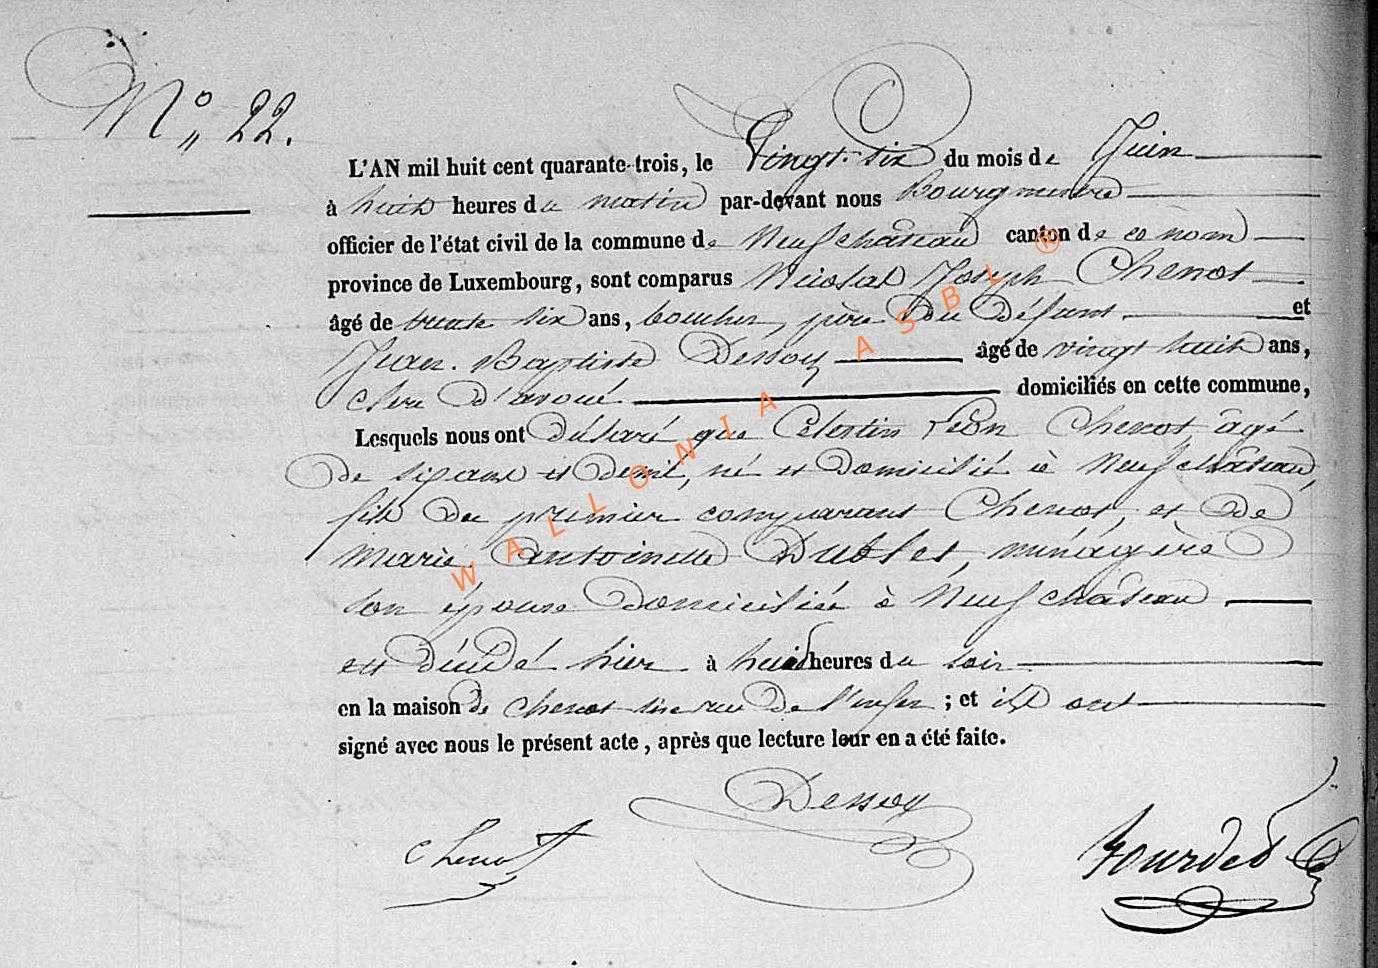 N° 22.
L'AN mil huit cent quarante-trois, le Vingt-six du mois de Juin
à huit heures du matin par-devant nous Bourgmestre
officier de l'état civil de la commune de Neufchâteau canton de ce nom
province de Luxembourg, sont comparus Nicolas Joseph Chenot
âgé de trente six ans, boucher, père du défunt et
Jean-Baptiste Dessoy âgé de vingt huit ans,
clerc d'avoué domiciliés en cette commune,
Lesquels nous ont déclaré que Célestin Léon Chenot, âgé
de six ans et demi, né et domicilié à Neufchâteau,
fils du premier comparant Chenot, et de
Marie Antoinette Dublet, ménagère
son épouse domiciliée à Neufchâteau
est décédé hier à huit heures du soir
en la maison de Chenot sise rue de l'enfer ; et ils ont
signé avec nous le présent acte, après que lecture leur en a été faite.
Dessoy
Chenot
Bourdet
WALLONIA ASBL ®